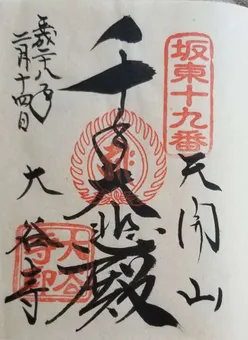 坂東十九番
天開山
千手大悲殿
平成二十八年
二月十四日
大谷寺
大谷
寺印